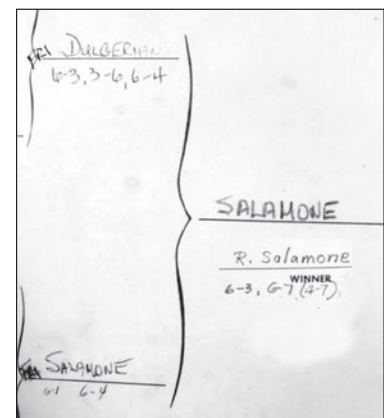 FRI DULGERIAN
6-3, 3-6, 6-4
SALAMONE
R. Salamone
WINNER
6-3, 6-7 (4-7)
SALAMONE
6-1 6-4